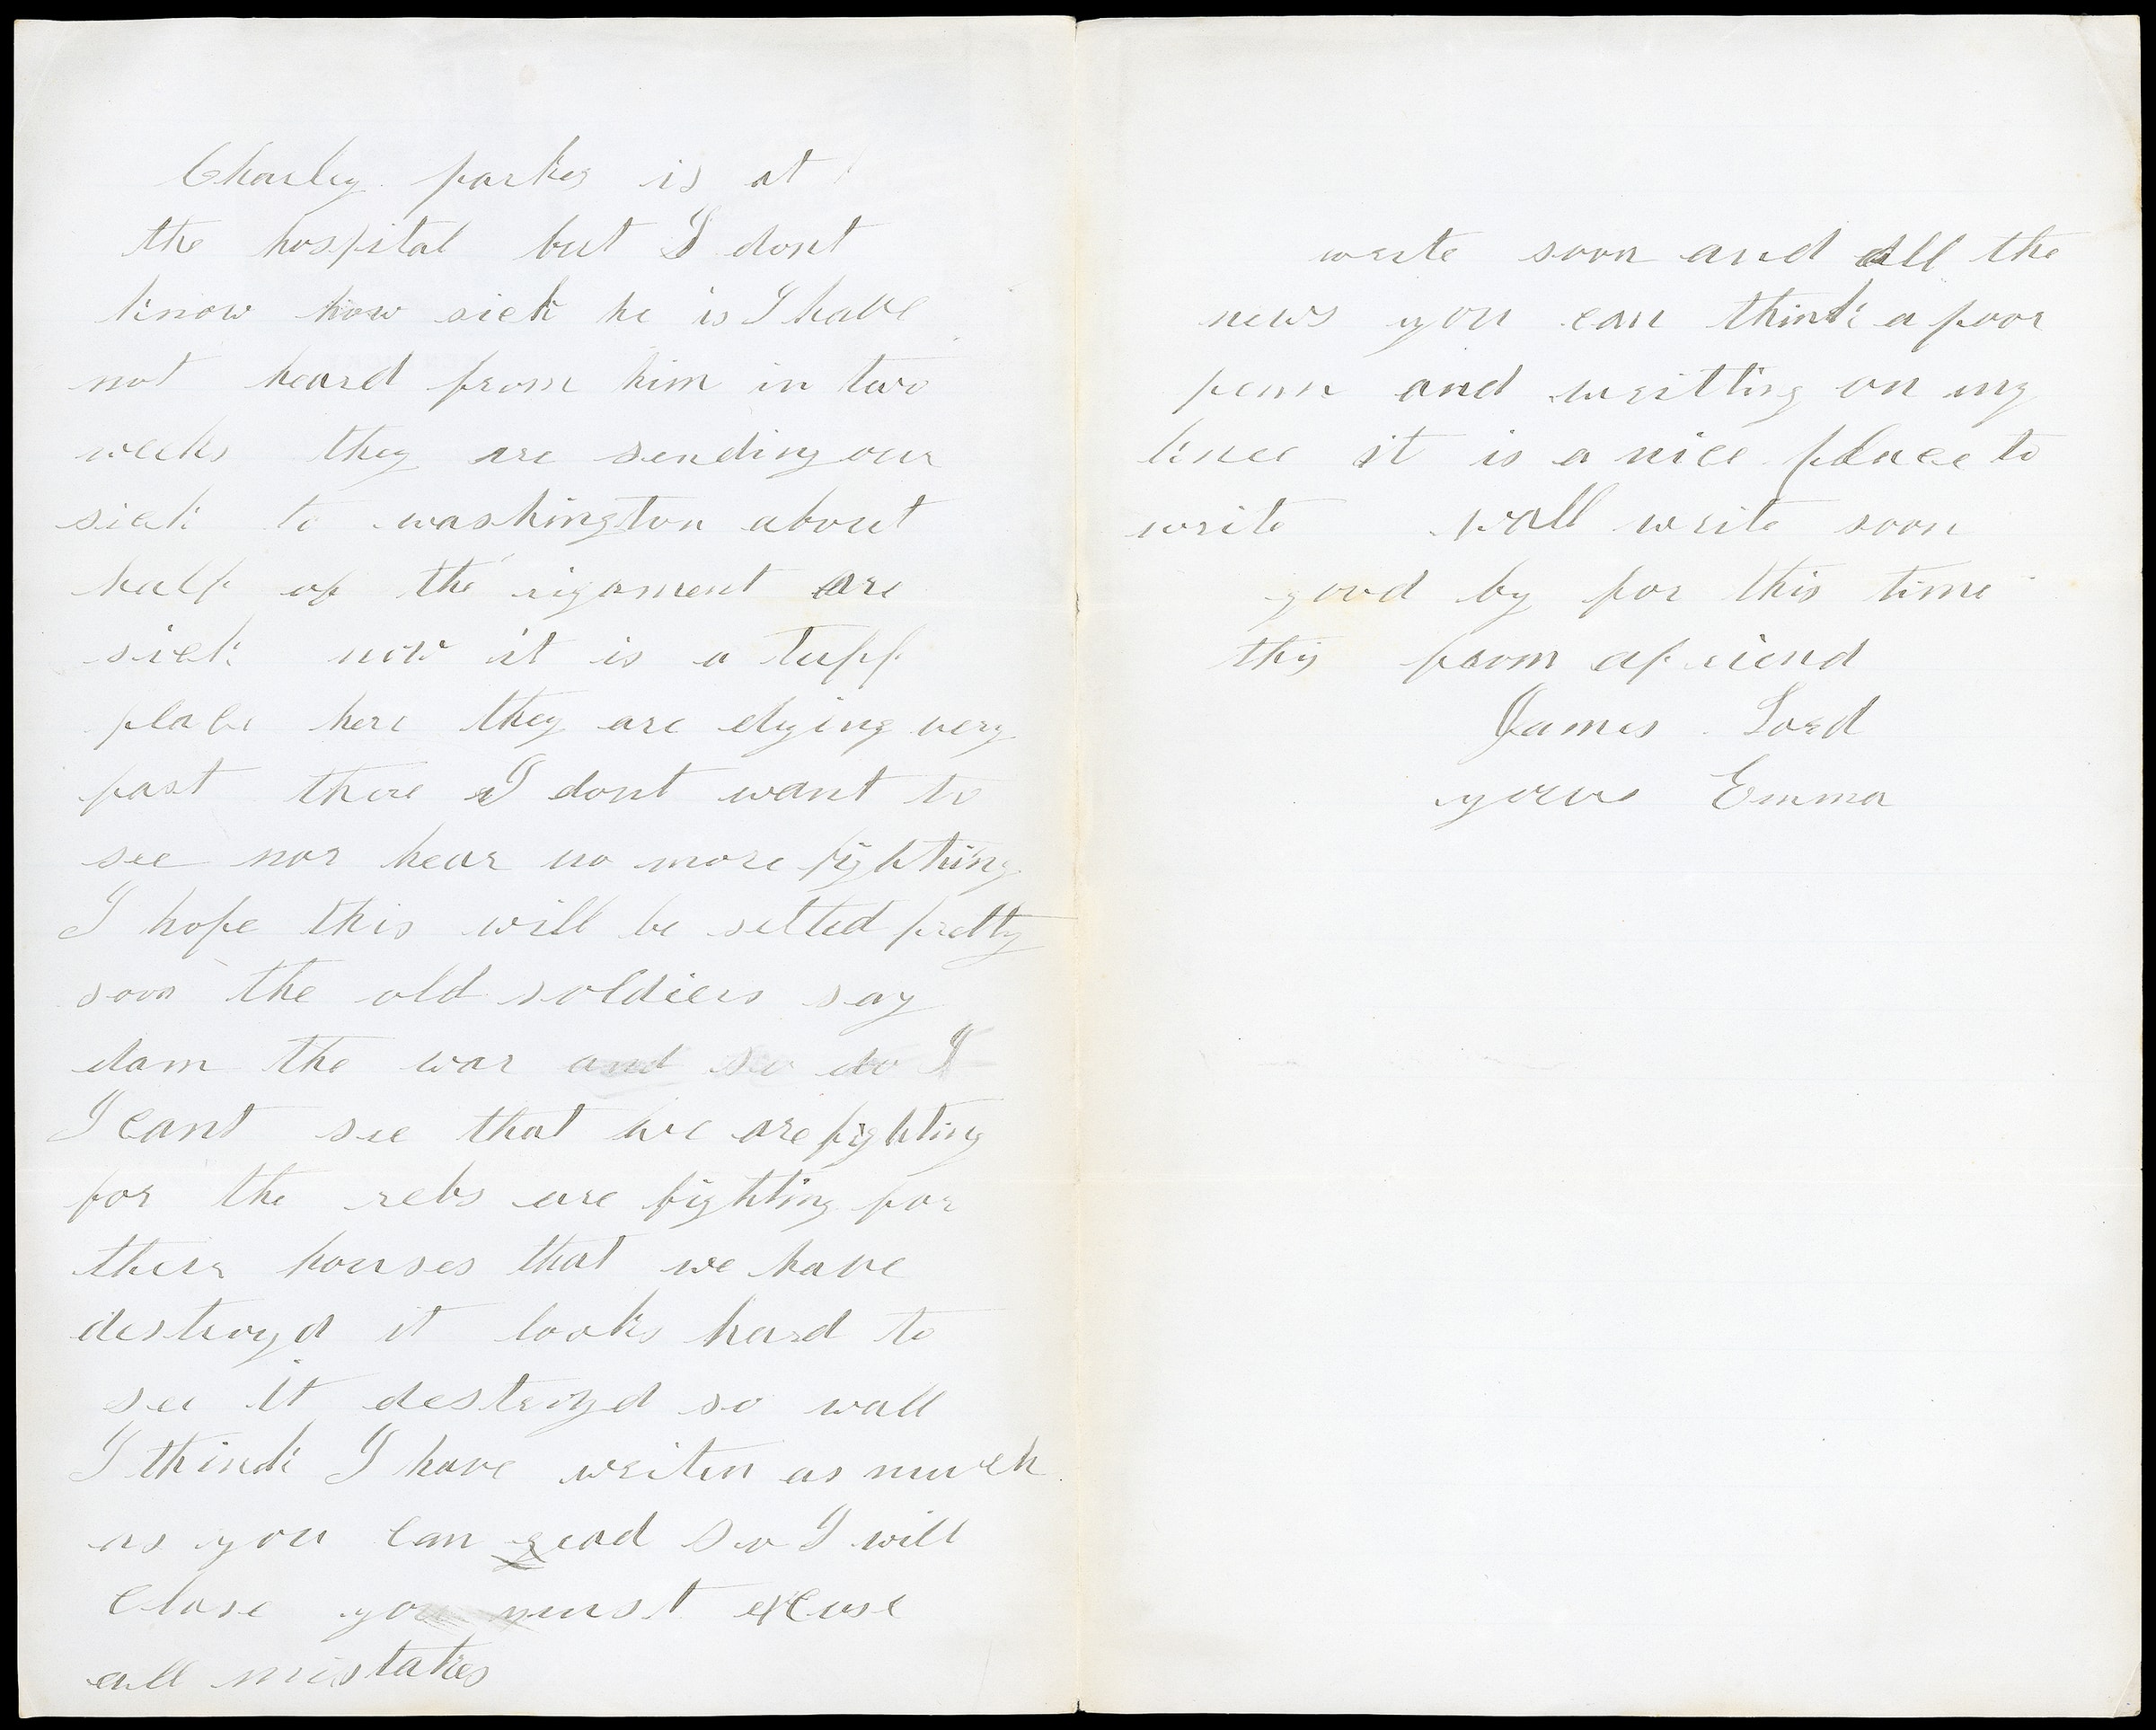 Charley parkes is at
the hospital but I dont
know how sick he is I have
not heard from him in two
weeks they are sending our
sick to washington about
half of the rigament are
sick now it is a tuff
place here they are dying very
fast there I dont want to
see nor hear no more fighting
I hope this will be selted pretty
soon the old soldiers say
dam the war and so do I
I cant see that we are fighting
for the rebs are fighting for
there houses that we have
destroyd it looks hard to
see it destroyd so wall
I think I have writen as much
as you can read so I will
close you must excuse
all mistakes
write soon and all the
news you can think a poor
penn and writting on my
knee it is a nice place to
write wall write soon
good by for this time
this from a friend
James Lord
yours Emma